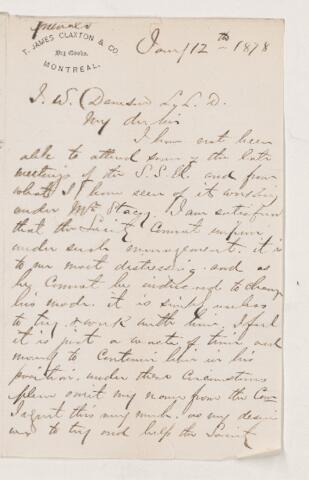 T. JAMES CLAXTON & CO
Dry Goods.
MONTREAL.
Jany 12th 1878
J. W. Dawson L.L.D.
My dear Sir
I have not been
able to attend some of the late
meetings of the S.S. and from
what I have seen of its working
under Mr Stacy. I am satisfied
that the Society Cannot improve
under such management. it is
to me most distressing. and as
he Cannot be induced to change
his mode. it is simply useless
to try & work with him. I feel
it is just a waste of time and
money to Continue him in his
position. under these Circumstances
please omit my name from the Com
I regret this very much. as my desire
was to try and help the Society